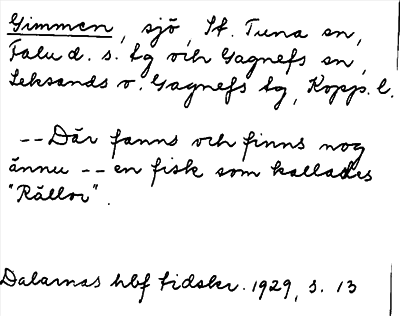 Gimmen, sjö, St. Tuna sn,
Falu d. s. tg och Gagnefs sn,
Leksands o. Gagnefs tg, Kopp. l.
-- Där fanns och finns nog
ännu -- en fisk som kallades
"Rällor".
Dalarnas hbf tidskr. 1929, s. 13